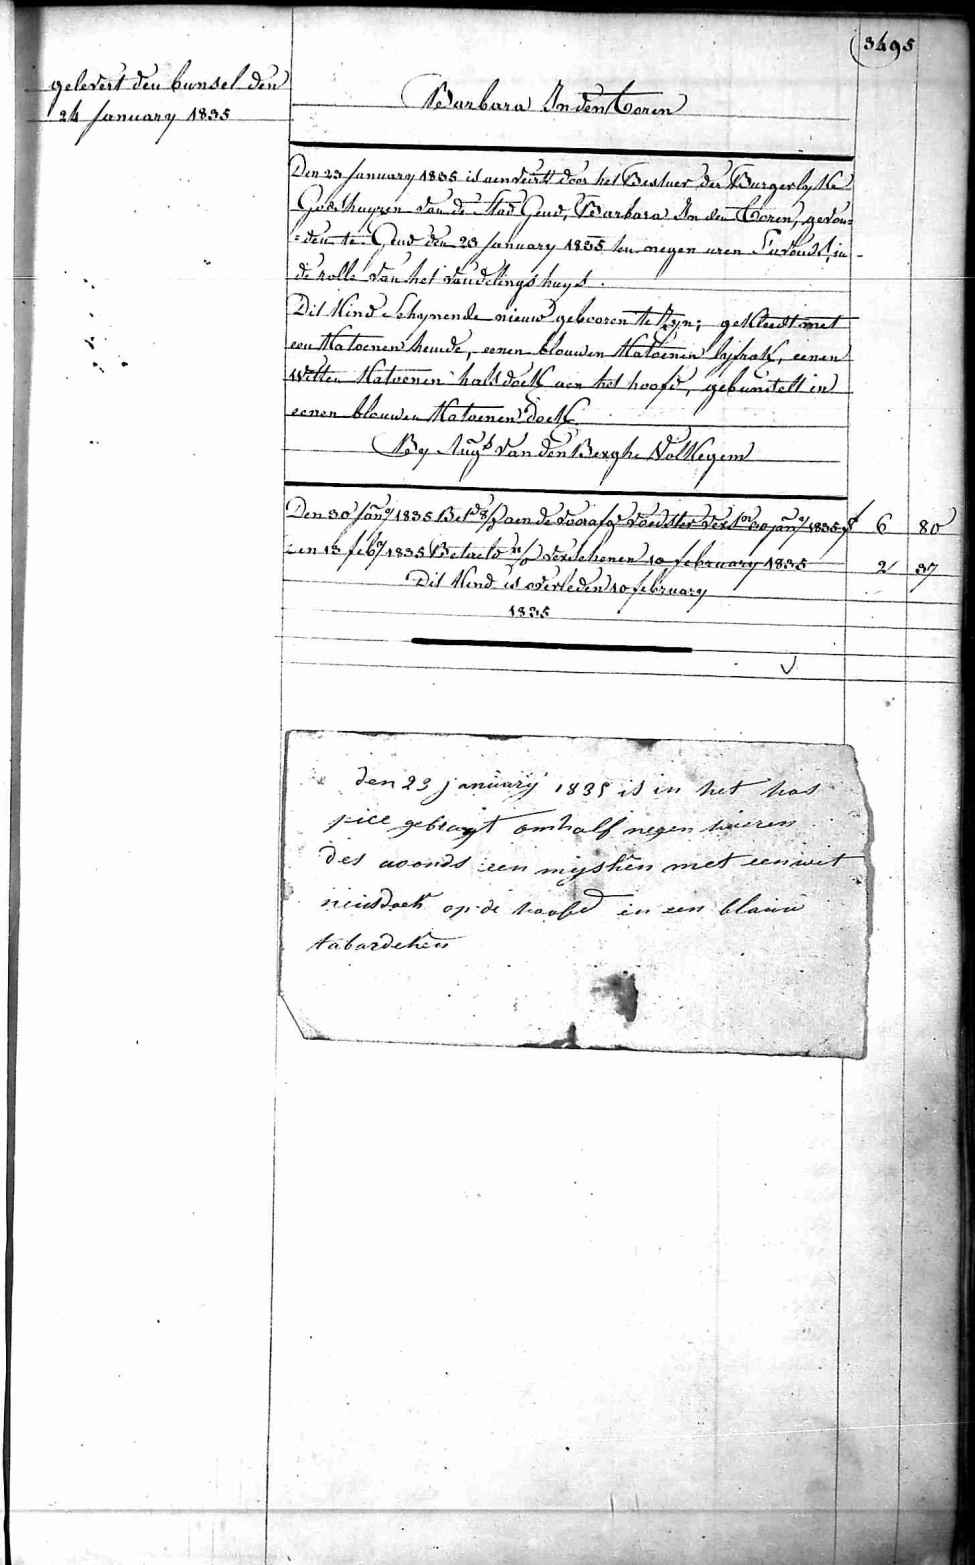 3495
gelevert den bunsel den
24 January 1835
Barbara In den Toren
Den 23 January 1835 is aenveirdt door het Bestuer der Burgerlyke
Godshuyzen van de Stad Gend, Barbara In den Toren, gevon=
=den te Gend den 23 January 1835 ten negen uren S'avonds, in
de rolle van het vondelingshuys.
Dit Kind Schynende nieuw gebooren te zyn; gekleedt met
een Katoenen hemde, eenen blauwen Katoenen lyfrok, eenen
Witten Katoenen halsdoek aen het hoofd, gebunselt in
eenen blauwen Katoenen doek.
By Aug.s Van den Berghe Volkegem
Den 30 Jan.y 1835 Bet.d aen de voorafg. voedster 30 jan.y 1835 f 6 80
Den 13 feb.y 1835 Betaeld verschenen 10 february 1835 2 37
Dit Kind is overleden 10 february
1835
den 23 januarÿ 1835 is in het hos
pice gebragt omhalf negen hueren
des avonds een mysken met een wit
neusdoek op de hoofd in een blauw
tabardeken